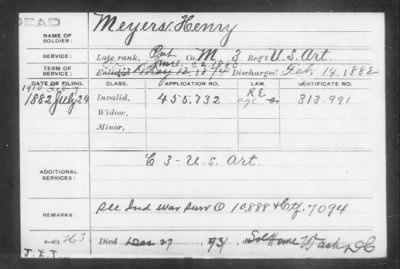 DEAD
NAME OF SOLDIER: Meyers, Henry
SERVICE: Late rank, Pvt Co. M 3 Reg't U.S. Art.
TERM OF SERVICE: Enlisted May 12, 187 Discharged Feb. 19, 1882
DATE OF FILING. CLASS. APPLICATION NO. LAW. CERTIFICATE NO.
1882 July 24 Invalid, 455.732 313.991
Widow,
Minor,
ADDITIONAL SERVICES: C 3 - U.S. Art.
REMARKS: See Ind War Surv O 10,888 & Ctf. 7094
Died Dec 27, 1931, at Sol Home Wash DC
J.E.T.